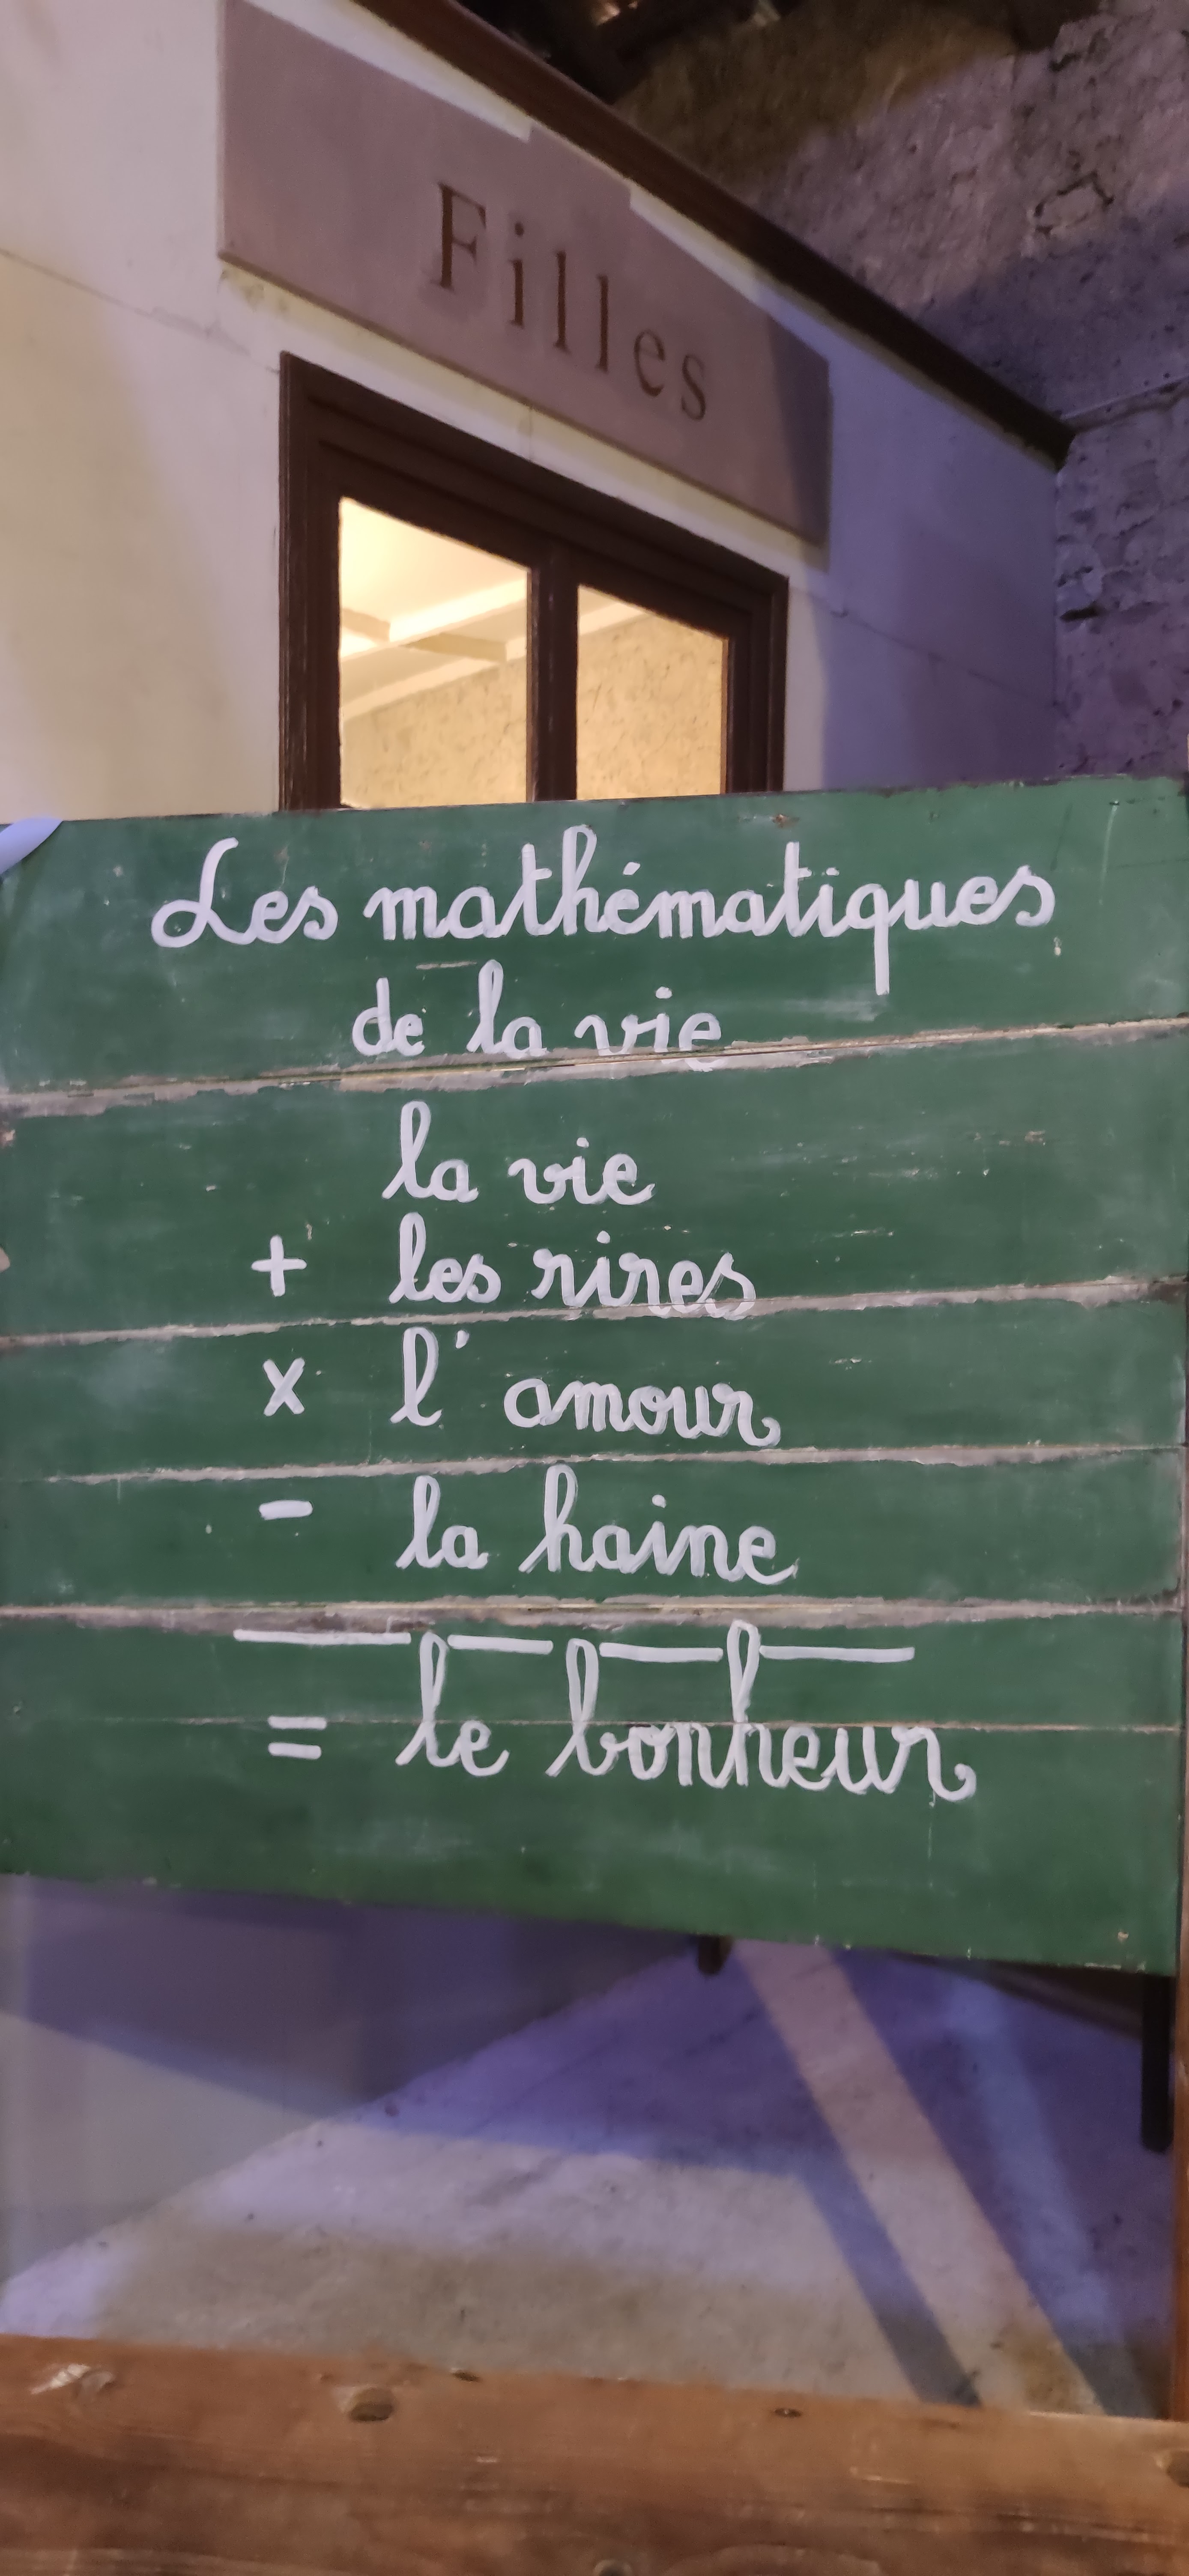 Filles
Les mathématiques
de la vie
la vie
+ les rires
x l'amour
- la haine
= le bonheur